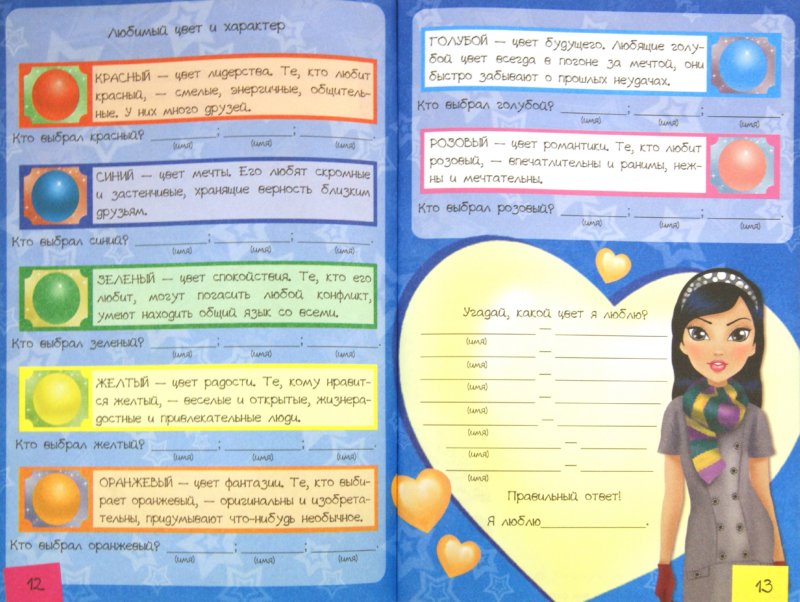 Любимый цвет и характер
КРАСНЫЙ — цвет лидерства. Те, кто любит
красный, — смелые, энергичные, общитель-
ные. У них много друзей.
Кто выбрал красный? ____________; ____________; ____________.
(имя) (имя) (имя)
СИНИЙ — цвет мечты. Его любят скромные
и застенчивые, хранящие верность близким
друзьям.
Кто выбрал синий? ____________; ____________; ____________.
(имя) (имя) (имя)
ЗЕЛЕНЫЙ — цвет спокойствия. Те, кто его
любит, могут погасить любой конфликт,
умеют находить общий язык со всеми.
Кто выбрал зеленый? ____________; ____________; ____________.
(имя) (имя) (имя)
ЖЕЛТЫЙ — цвет радости. Те, кому нравит-
ся желтый, — веселые и открытые, жизнера-
достные и привлекательные люди.
Кто выбрал желтый? ____________; ____________; ____________.
(имя) (имя) (имя)
ОРАНЖЕВЫЙ — цвет фантазии. Те, кто выби-
рает оранжевый, — оригинальны и изобрета-
тельны, придумывают что-нибудь необычное.
Кто выбрал оранжевый? ____________; ____________; ____________.
(имя) (имя) (имя)
12
ГОЛУБОЙ — цвет будущего. Любящие голу-
бой цвет всегда в погоне за мечтой, они
быстро забывают о прошлых неудачах.
Кто выбрал голубой? ____________; ____________; ____________.
(имя) (имя) (имя)
РОЗОВЫЙ — цвет романтики. Те, кто любит
розовый, — впечатлительны и ранимы, неж-
ны и мечтательны.
Кто выбрал розовый? ____________; ____________; ____________.
(имя) (имя) (имя)
Угадай, какой цвет я люблю?
____________ — ____________
(имя)
____________ — ____________
(имя)
____________ — ____________
(имя)
____________ — ____________
(имя)
____________ — ____________
(имя)
____________ — ____________
(имя)
____________ — ____________
(имя)
Правильный ответ!
Я люблю____________.
13